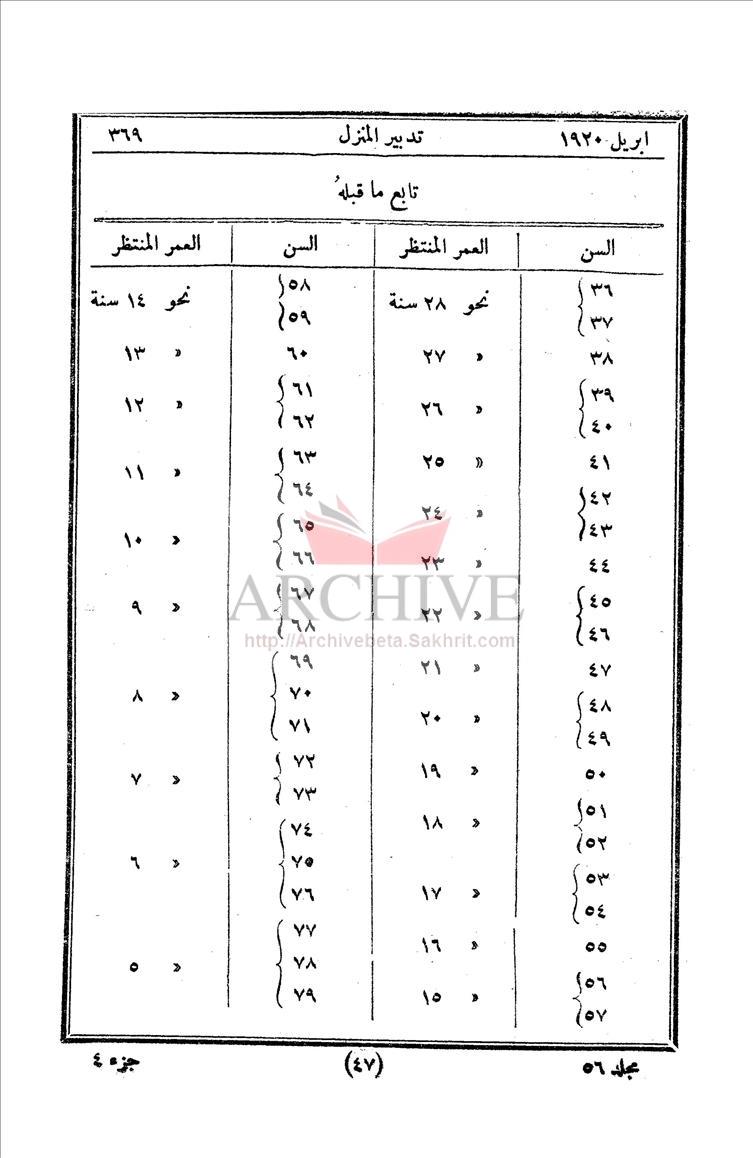 ابريل ١٩٢٠ تدبير المنزل ٣٦٩
تابع ما قبلهُ
السن العمر المنتظر السن العمر المنتظر
٣٦
٣٧
نحو ٢٨ سنة
٣٨ » ٢٧
٣٩
٤٠
» ٢٦
٤١ » ٢٥
٤٢
٤٣
» ٢٤
٤٤ » ٢٣
٤٥
٤٦
» ٢٢
٤٧ » ٢١
٤٨
٤٩
» ٢٠
٥٠ » ١٩
٥١
٥٢
» ١٨
٥٣
٥٤
» ١٧
٥٥ » ١٦
٥٦
٥٧
» ١٥
٥٨
٥٩
نحو ١٤ سنة
٦٠ » ١٣
٦١
٦٢
» ١٢
٦٣
٦٤
» ١١
٦٥
٦٦
» ١٠
٦٧
٦٨
» ٩
٦٩
٧٠
٧١
» ٨
٧٢
٧٣
» ٧
٧٤
٧٥
٧٦
» ٦
٧٧
٧٨
٧٩
» ٥
ARCHIVE
http://Archivebeta.Sakhrit.com
مجلد ٥٦ (٤٧) جزء ٤